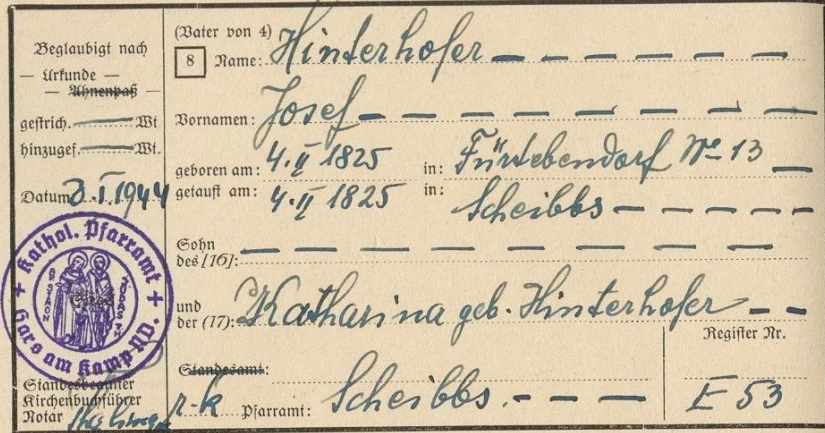 Beglaubigt nach
— Urkunde —
— Ahnenpaß —
gestrich. — Wt
hinzugef. — Wt.
Datum 3.I.1944
+ Kathol. Pfarramt +
Gars am Kamp-ND.
Standesbeamter
Kirchenbuchführer
Notar
(Vater von 4)
8 Name: Hinterhofer — — — — — —
Vornamen: Josef — — — — — — — —
geboren am: 4. II 1825 in: Fürtebendorf No 13 —
getauft am: 4. II 1825 in: Scheibbs — — — — — —
Sohn
des [16]: — — — — — — — — —
und
der (17): Katharina geb. Hinterhofer — —
Register Nr.
Standesamt:
r.k Pfarramt: Scheibbs. — — — E 53